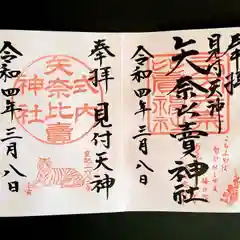 奉拝
見付天神
矢奈比賣神社
令和四年三月八日
奉拝
見付天神
式内
矢奈比賣
神社
令和四年三月八日